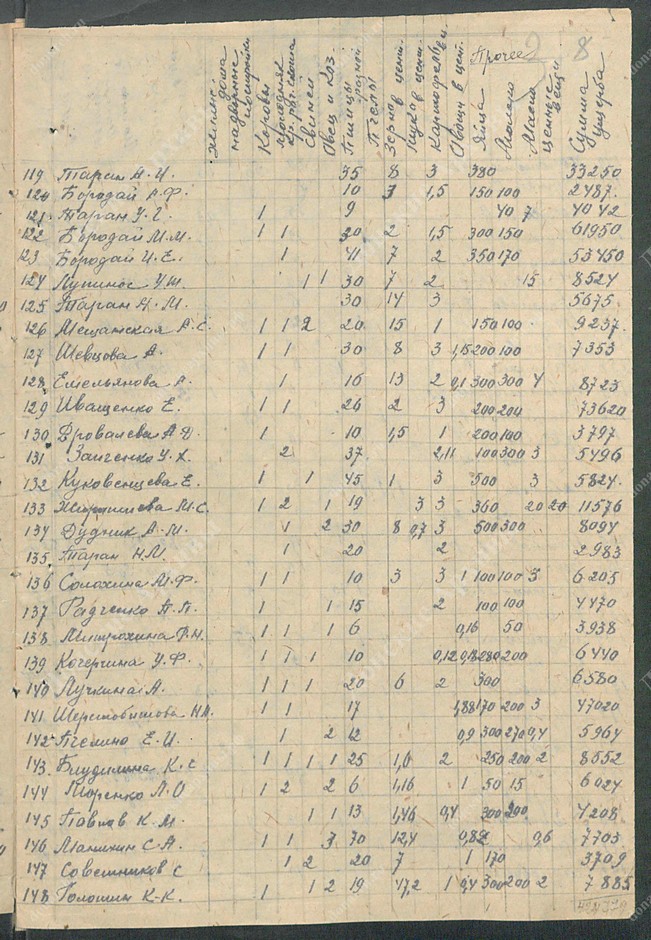 8
Жилые дома надворные постройки Коровы молодняк кр. рог. скота Свиней Овец и Коз Птицы разной Пчелы Зерна в цент. Мука в цент. Картофель в ц. Овощи в цент. Прочее Яйца Молоко Масло ценные вещи Сумма ущерба
119 Таран А. И. 35 8 3 380 33250
120 Бородай А. Ф. 10 3 1,5 150 100 2487.
121. Таран У. Г. 1 9 40 7 4042
122 Бородай М. М. 1 1 20 2 1,5 300 150 61950
123 Бородай И. Е. 1 41 7 2 350 170 53450
124 Лупинос У. Ш. 1 1 30 7 2 15 8524
125 Таран Я. М. 30 14 3 5675.
126 Мещанская А. С. 1 1 2 20 15 1 150 100 9237.
127 Шевцова А. 1 1 30 8 3 1,15 200 100 7353
128 Емельянова А. 1 16 13 2 0,1 300 300 4 8723
129 Иващенко Е. 1 1 26 2 3 200 200 73620
130 А. Д. 1 10 1,5 1 200 100 3797
131 Заиченко У. Х. 2 37 2,11 100 300 3 5496
132 Куковенцева Е. 1 1 45 1 3 500 3 5824.
133 М. С. 1 2 1 19 3 3 360 20 20 11576
134 Дудник А. М. 1 2 30 8 0,7 3 500 300 8094
135 Таран Н. М. 1 20 2 2983
136 Солохина М. Ф. 1 1 10 3 3 1 100 100 3 6205
137 Радченко А. П. 1 1 15 2 100 100 4470
138 Митрохина Р. Н. 1 1 1 6 0,16 50 3938
139 Кочергина У. Ф. 1 1 1 10 0,12 0,18 280 200 6440
140 Лучкина А. 1 1 1 20 6 2 300 6580
141 Шерстобитова Н. А. 1 1 17 1,88 170 200 3 47020
142 Пчелино Е. И. 1 2 12 0,9 300 270 0,4 5964
143. Блудилина К. С 1 1 1 1 25 1,0 2 250 200 2 8552
144 Моренко Л. О 1 2 2 6 1,16 1 50 15 6024
145 Павлов К. М. 1 1 13 1,46 0,4 300 200 4208
146 Маникин С. А. 1 1 3 70 12,4 0,82 0,6 7703
147 Советников С 1 2 20 7 1 170 3709
148 Голошин К. К. 1 1 2 19 17,2 1 0,4 300 200 2 7885